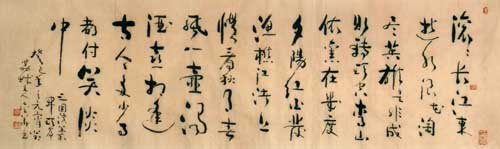 滚々长江東
逝水浪花淘
尽英雄是非成
败转头空青山
依旧在幾度
夕陽红白发
渔樵江渚上
惯看秋月春
风一壶浊
酒喜相逢
古今多少事
都付笑谈
中
三国演义